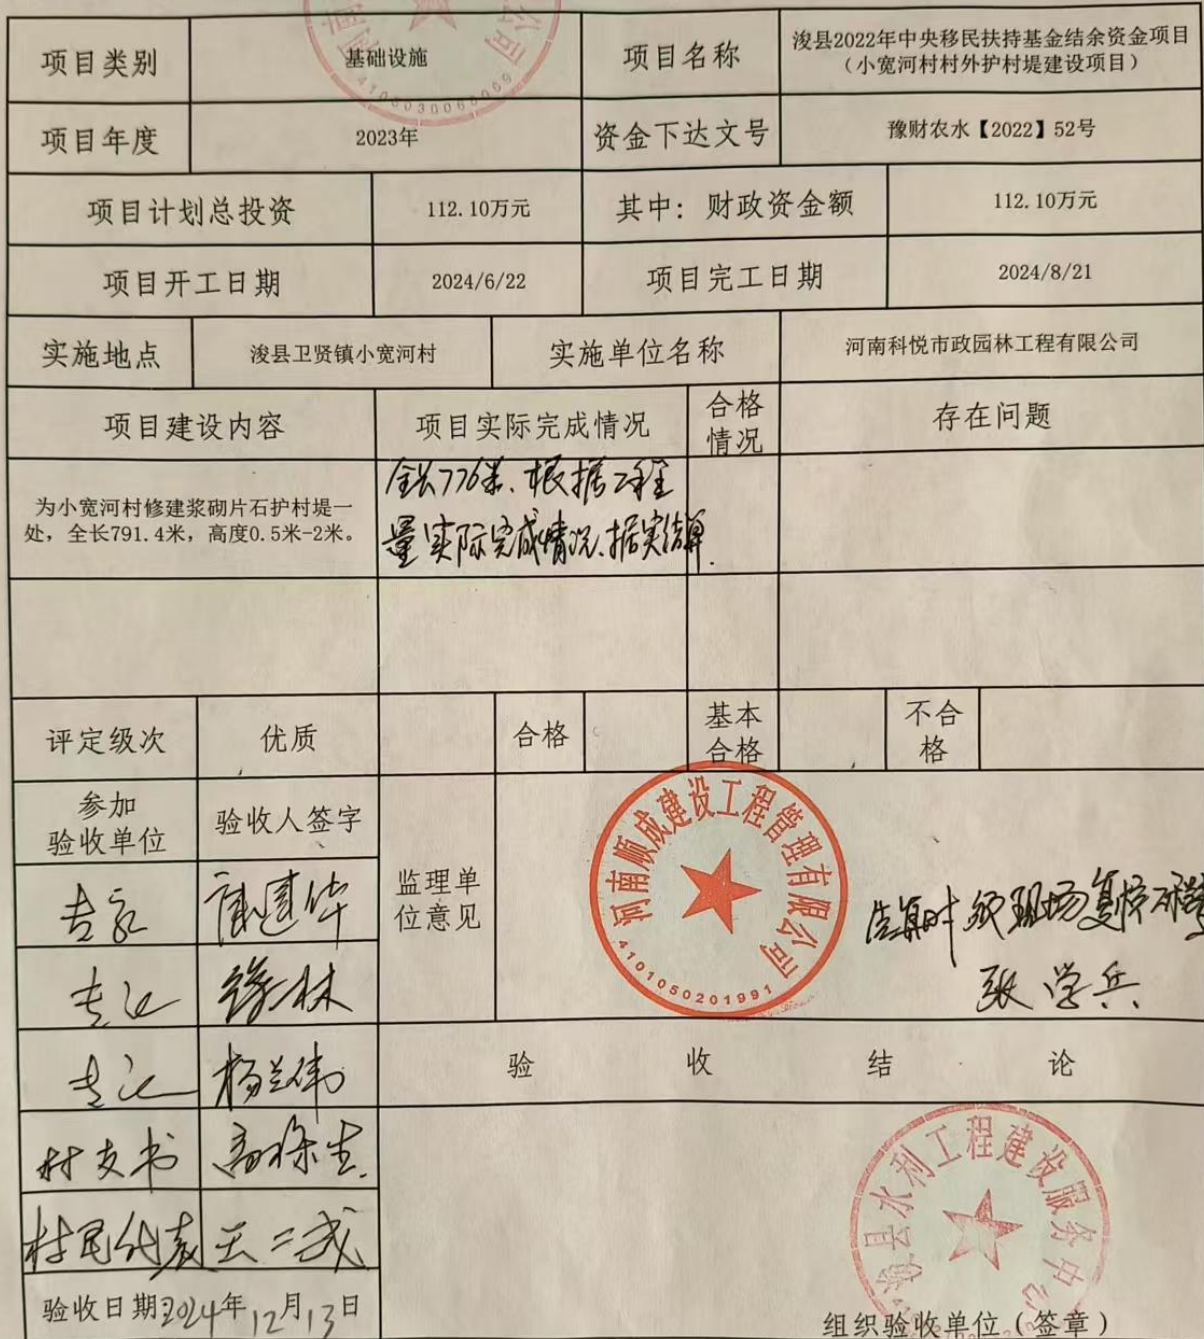 公司
4106030060069
项目类别 基础设施 项目名称 浚县2022年中央移民扶持基金结余资金项目
（小宽河村村外护村堤建设项目）
项目年度 2023年 资金下达文号 豫财农水【2022】52号
项目计划总投资 112.10万元 其中：财政资金额 112.10万元
项目开工日期 2024/6/22 项目完工日期 2024/8/21
实施地点 浚县卫贤镇小宽河村 实施单位名称 河南科悦市政园林工程有限公司
项目建设内容 项目实际完成情况 合格
情况 存在问题
为小宽河村修建浆砌片石护村堤一
处，全长791.4米，高度0.5米-2米。
全长776米、根据工程
量实际完成情况、据实结算.
评定级次 优质 合格 基本
合格 不合
格
参加
验收单位 验收人签字
监理单
位意见
河南顺成建设工程管理有限公司
4101050201991
结算时须现场复核
张学兵
专家
专家 林
专家 杨兰伟
村支书 生
村民代表 王二武
验收结论
浚县水利工程建设服务中心
验收日期2024年12月13日
组织验收单位（签章）